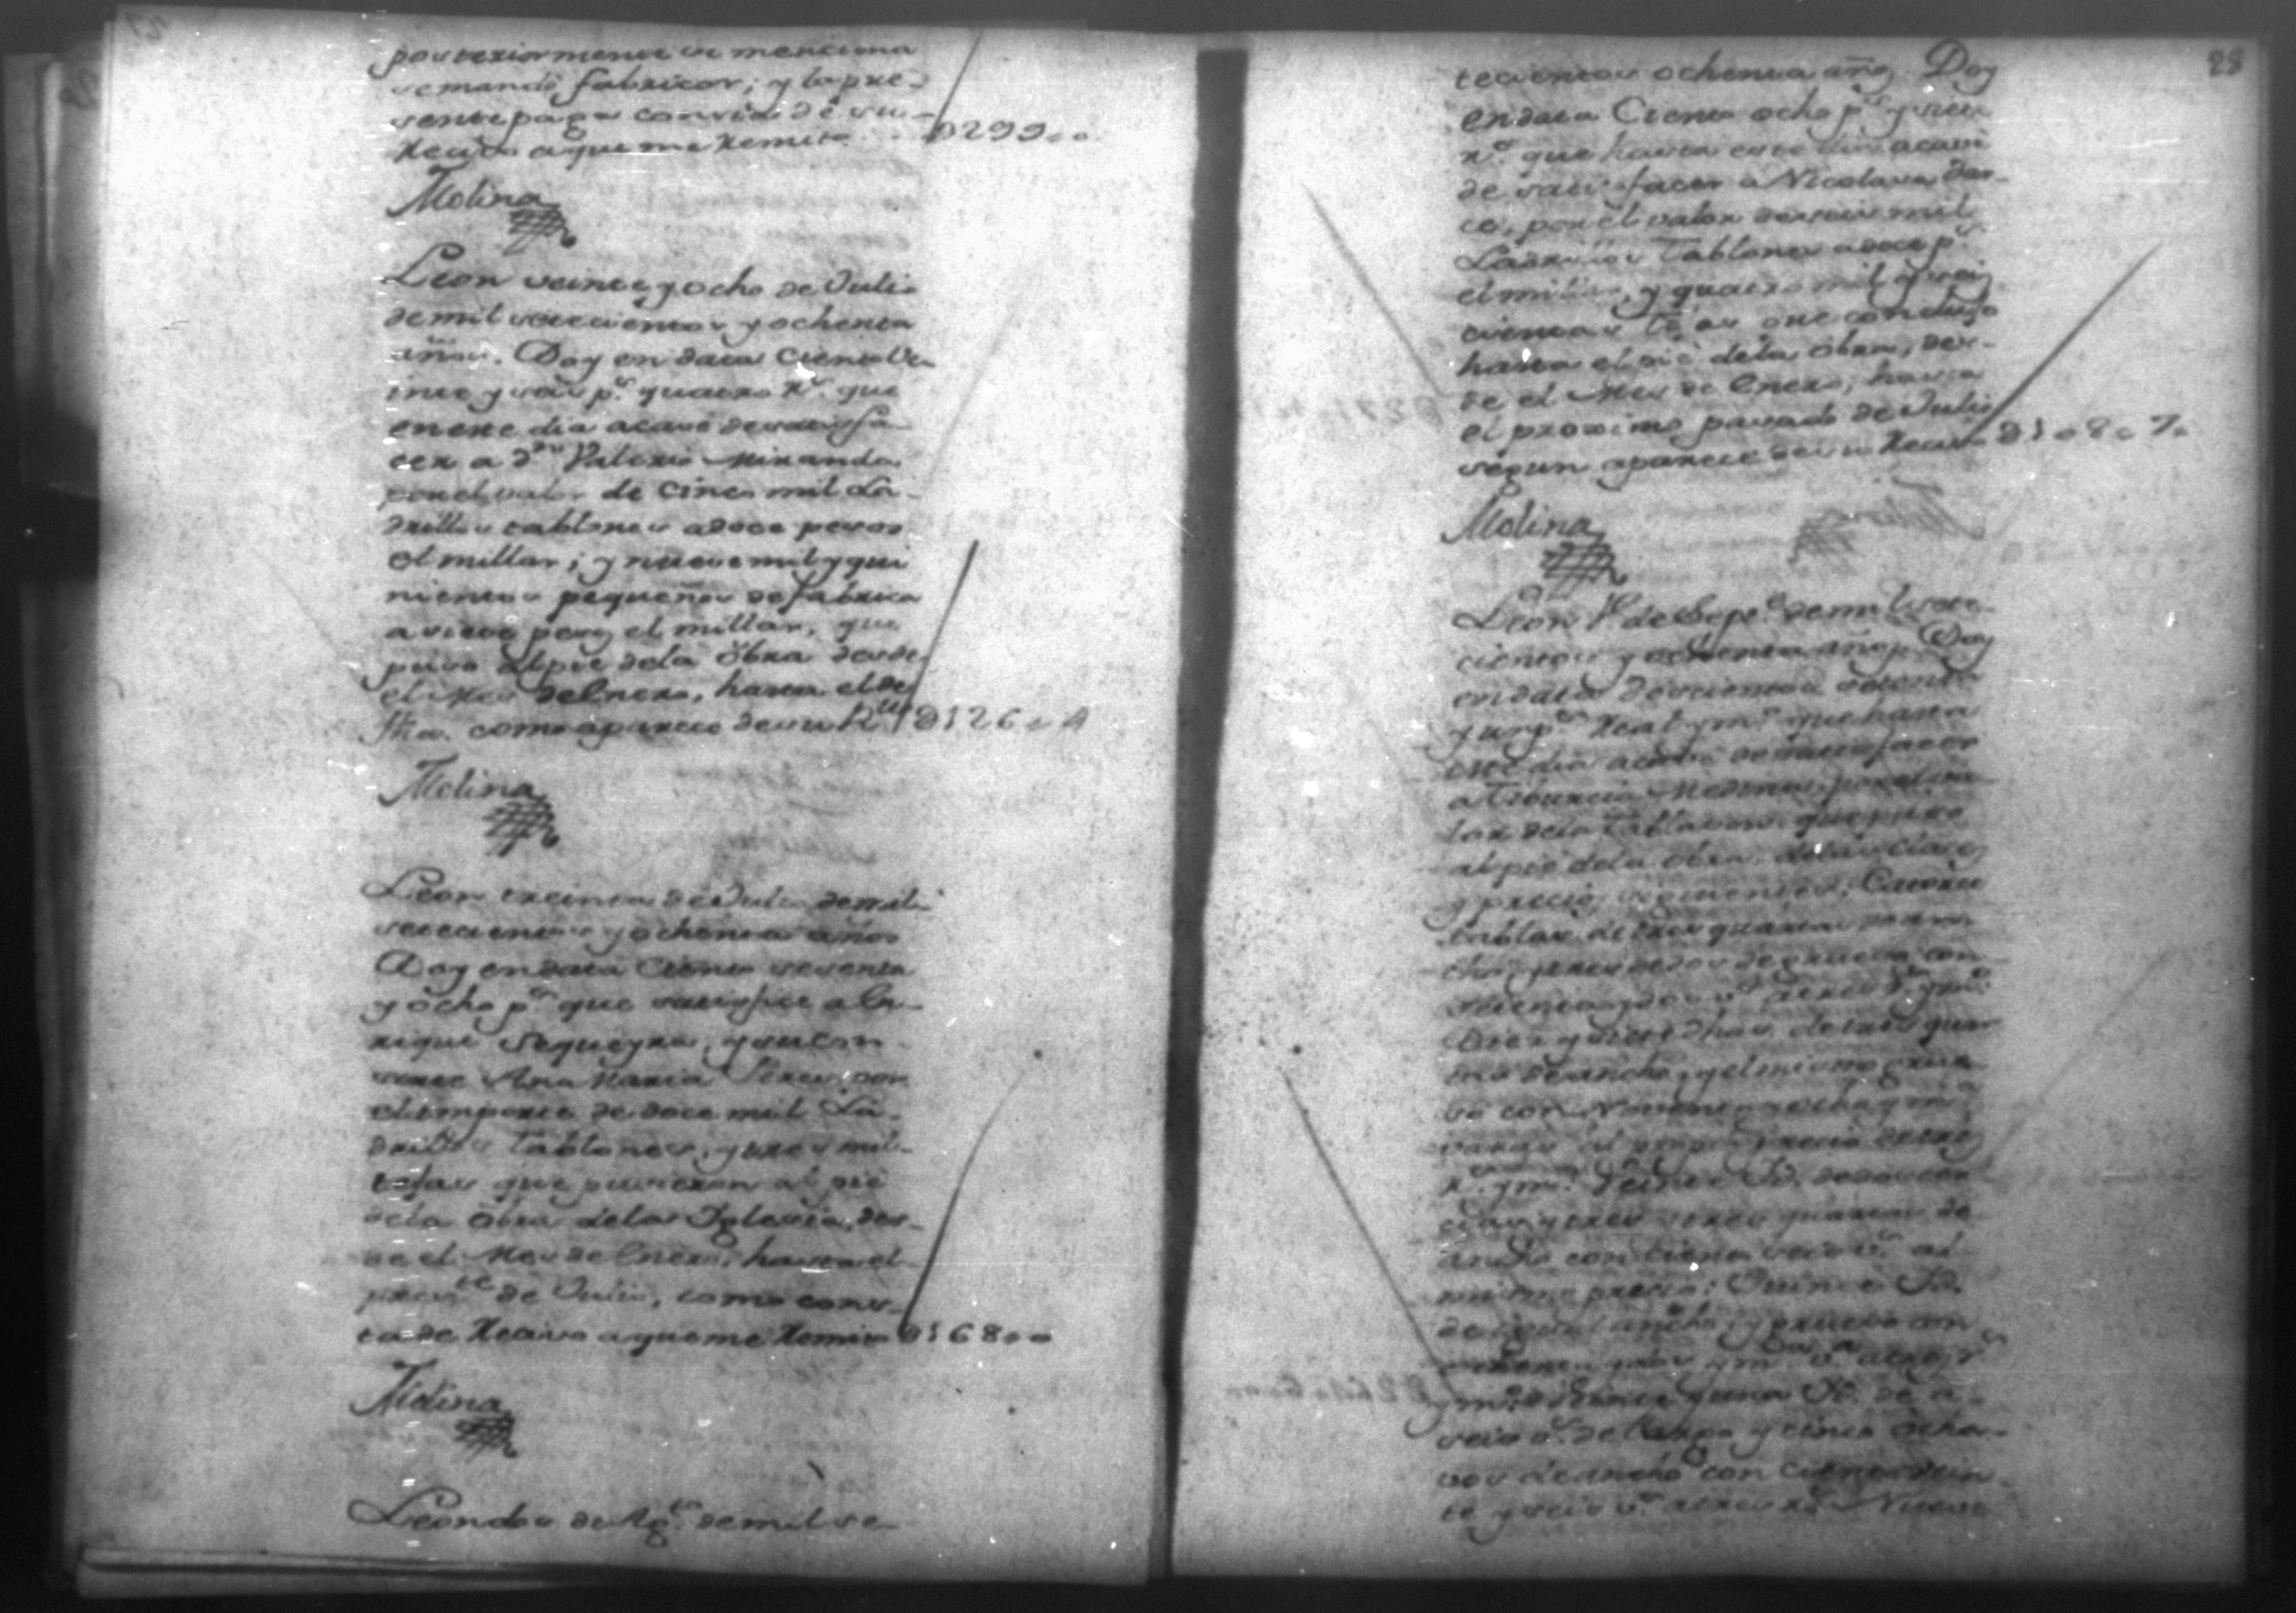 posteriormente se menciona
se mandó fabricar; y la pre-
sente paga consta de su
Recivo a que me Remito ... 0299..0
Molina
Leon veinte y ocho de Julio
de mil setecientos y ochenta
años. Doy en data Ciento Ve-
inte y seis p.s quatro R.s que
en este dia acavé de satisfa-
cer a d.n Valerio Miranda
por el valor de cinco mil La-
drillos tablones a doce pesos
el millar; y nueve mil y qui
nientos pequeños de fabrica
a siete pesos el millar, que
puso al pie de la obra desde
el Mes de Enero, hasta el de
fha. como aparece de su R.vo 0126..4
Molina
Leon treinta de Julio de mil
setecientos y ochenta años
Doy en data Ciento sesenta
y ocho p.s que satisfice a En-
rique Sequeyra, y su con-
sorte Ana Maria Perez por
el importe de doce mil La-
drillos Tablones, y tres mil
tejas que pusieron al pie
de la obra de la Yglesia, des-
de el Mes de Enero, hasta el
pres.te de Julio, como cons-
ta de Recivo a que me Remito 0168..0
Molina
Leon dos de Ag.to de mil se-
28
tecientos ochenta añs. Doy
en data Ciento ocho p.s y siete
R.s que hasta este dia acavé
de satisfacer a Nicolasa
por el valor de seis mil
Ladrillos Tablones a doce p.s
el millar, y quatro mil y seis
cientas tejas que condujo
hasta el pie de la obra, des-
de el Mes de Enero, hasta
el proximo pasado de Julio
segun aparece de su Recivo 0108..7.
Molina
Leon 1.o de Sept.e de mil sete-
cientos y ochenta años Doy
en data Doscientos setenta
y un p.s Real y m.o que hasta
este dia acavé de satisfacer
a Tiburcio Medina, por el va-
lor de la Tablason que puso
al pie de la obra, de las clases
y precios siguientes: Catorce
tablas de tres quartas de an-
cho, y tres dedos de grueso con
Diez y siete dhas. de tres quar
tas de ancho, y el mismo grue-
so con Noventa y ocho y m.a
varas al propio precio de tres
R.s y m.o Veinte Yd.
y tres quartas de
ancho con ciento seis v.s al
mismo precio: Quince Yd.
de igual ancho, y grueso con
y m.o Yd. de a
seis v.s de largo y cinco ocha-
vos de ancho con ciento vein
te y seis v.s a tres R.s Nueve